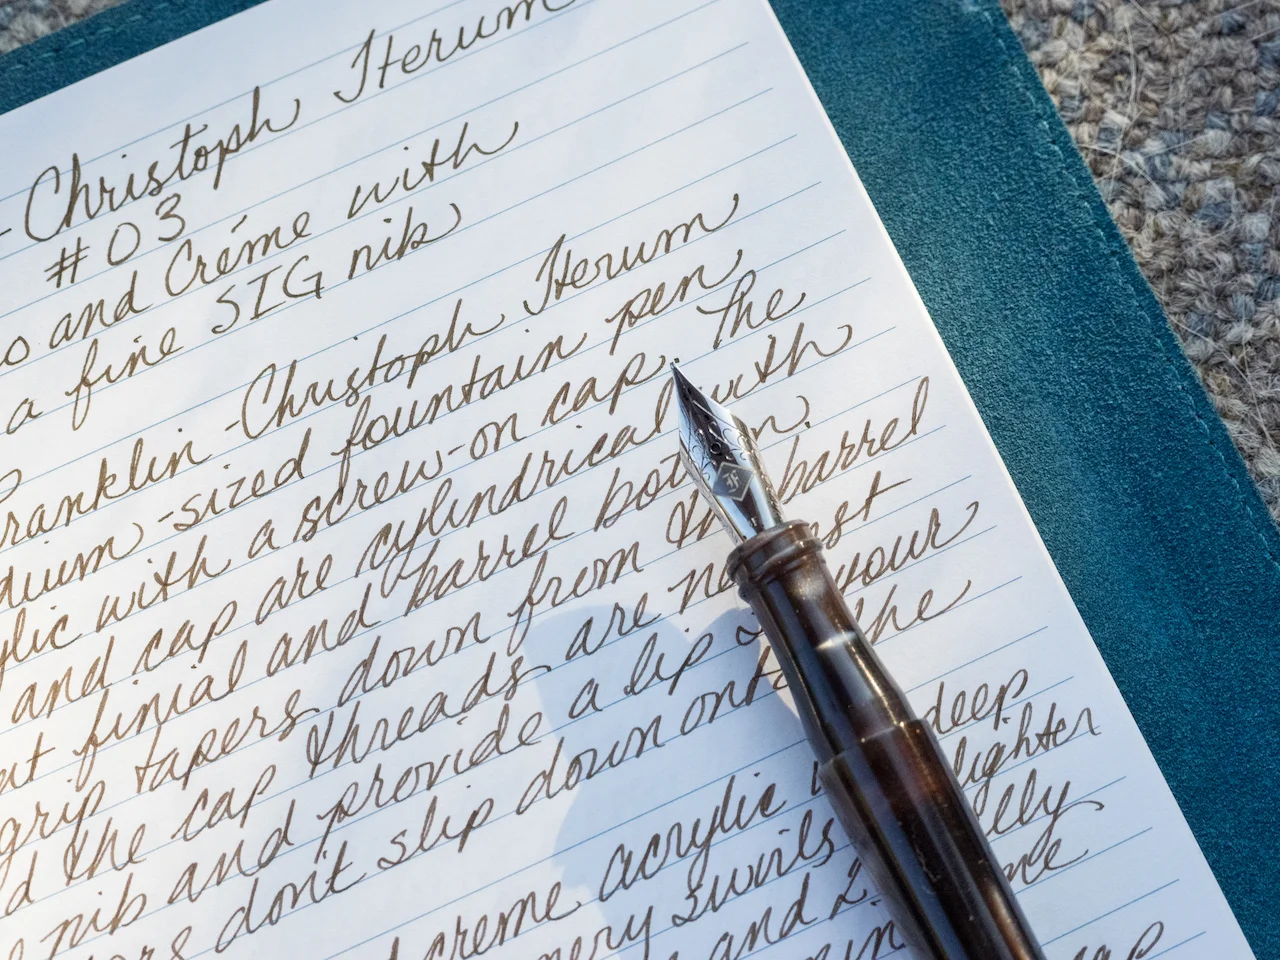 -Christoph Iterum
#03
and Créme with
a fine SIG nib
ranklin-Christoph Iterum
dium-sized fountain pen
ylic with a screw-on cap. The
and cap are cylindrical with
at finial and barrel bottom.
grip tapers down from the barrel
d the cap threads are not
nib and provide a lip your
don't slip down onto the
creme acrylic deep
mery swirls lighter
and 2
cap
F